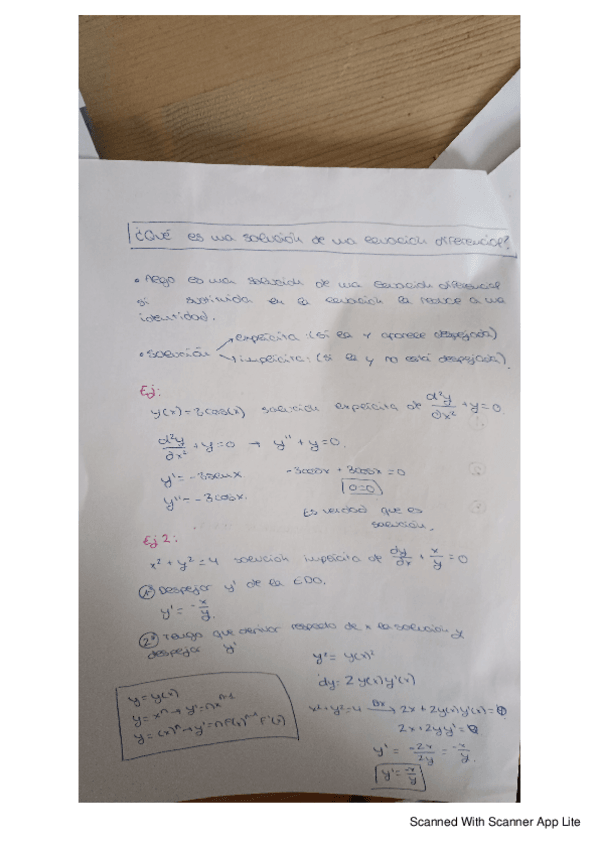 ¿Qué es una solución de una ecuación diferencial?
• Algo es una solución de una ecuación diferencial
si sustituida en la ecuación la reduce a una
identidad.
• solución
explícita: (si la y aparece despejada)
implícita: (si la y no está despejada).
Ej:
y(x)=3cos(x) solución explícita de d²y/dx² + y=0.
d²y/dx² + y=0 → y'' + y=0.
y'= -3senx
-3cosx + 3cosx=0
y''= -3cosx.
0=0
Es verdad que es
solución.
Ej 2:
x² + y² = 4 solución implícita de dy/dx + x/y = 0
1º Despejar y' de la EDO.
y' = -x/y.
2º Tengo que derivar respecto de x la solución y
despejar y'
y² = y(x)²
dy = 2y(x)y'(x)
x²+y²=4 → 2x + 2y(x)y'(x)=0
2x+2yy'=0
y' = -2x/2y = -x/y.
y' = -x/y
y=y(x)
y=xⁿ → y'=nxⁿ⁻¹
y=f(x)ⁿ → y'=nf(x)ⁿ⁻¹ f'(x)
Scanned With Scanner App Lite